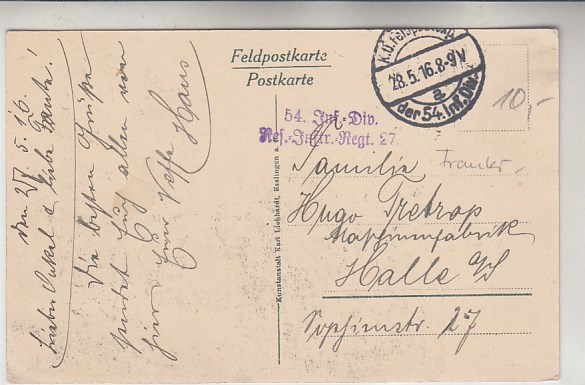 den 27.5.16.
Lieber Onkel & liebe Tante!
Die besten Grüße
sendet Euch allen von
hier Euer Neffe Hans
Feldpostkarte
Postkarte
K.D. Feldpostexp.
28.5.16.8-9V
a
der 54. Inf. Div.
10,-
54. Inf.-Div.
Res.-Inftr.-Regt. 27.
Familie
Hugo Tretrop
Maschinenfabrik
Halle a/S
Sophienstr. 27
Kunstanstalt Karl Liebhardt, Esslingen a.